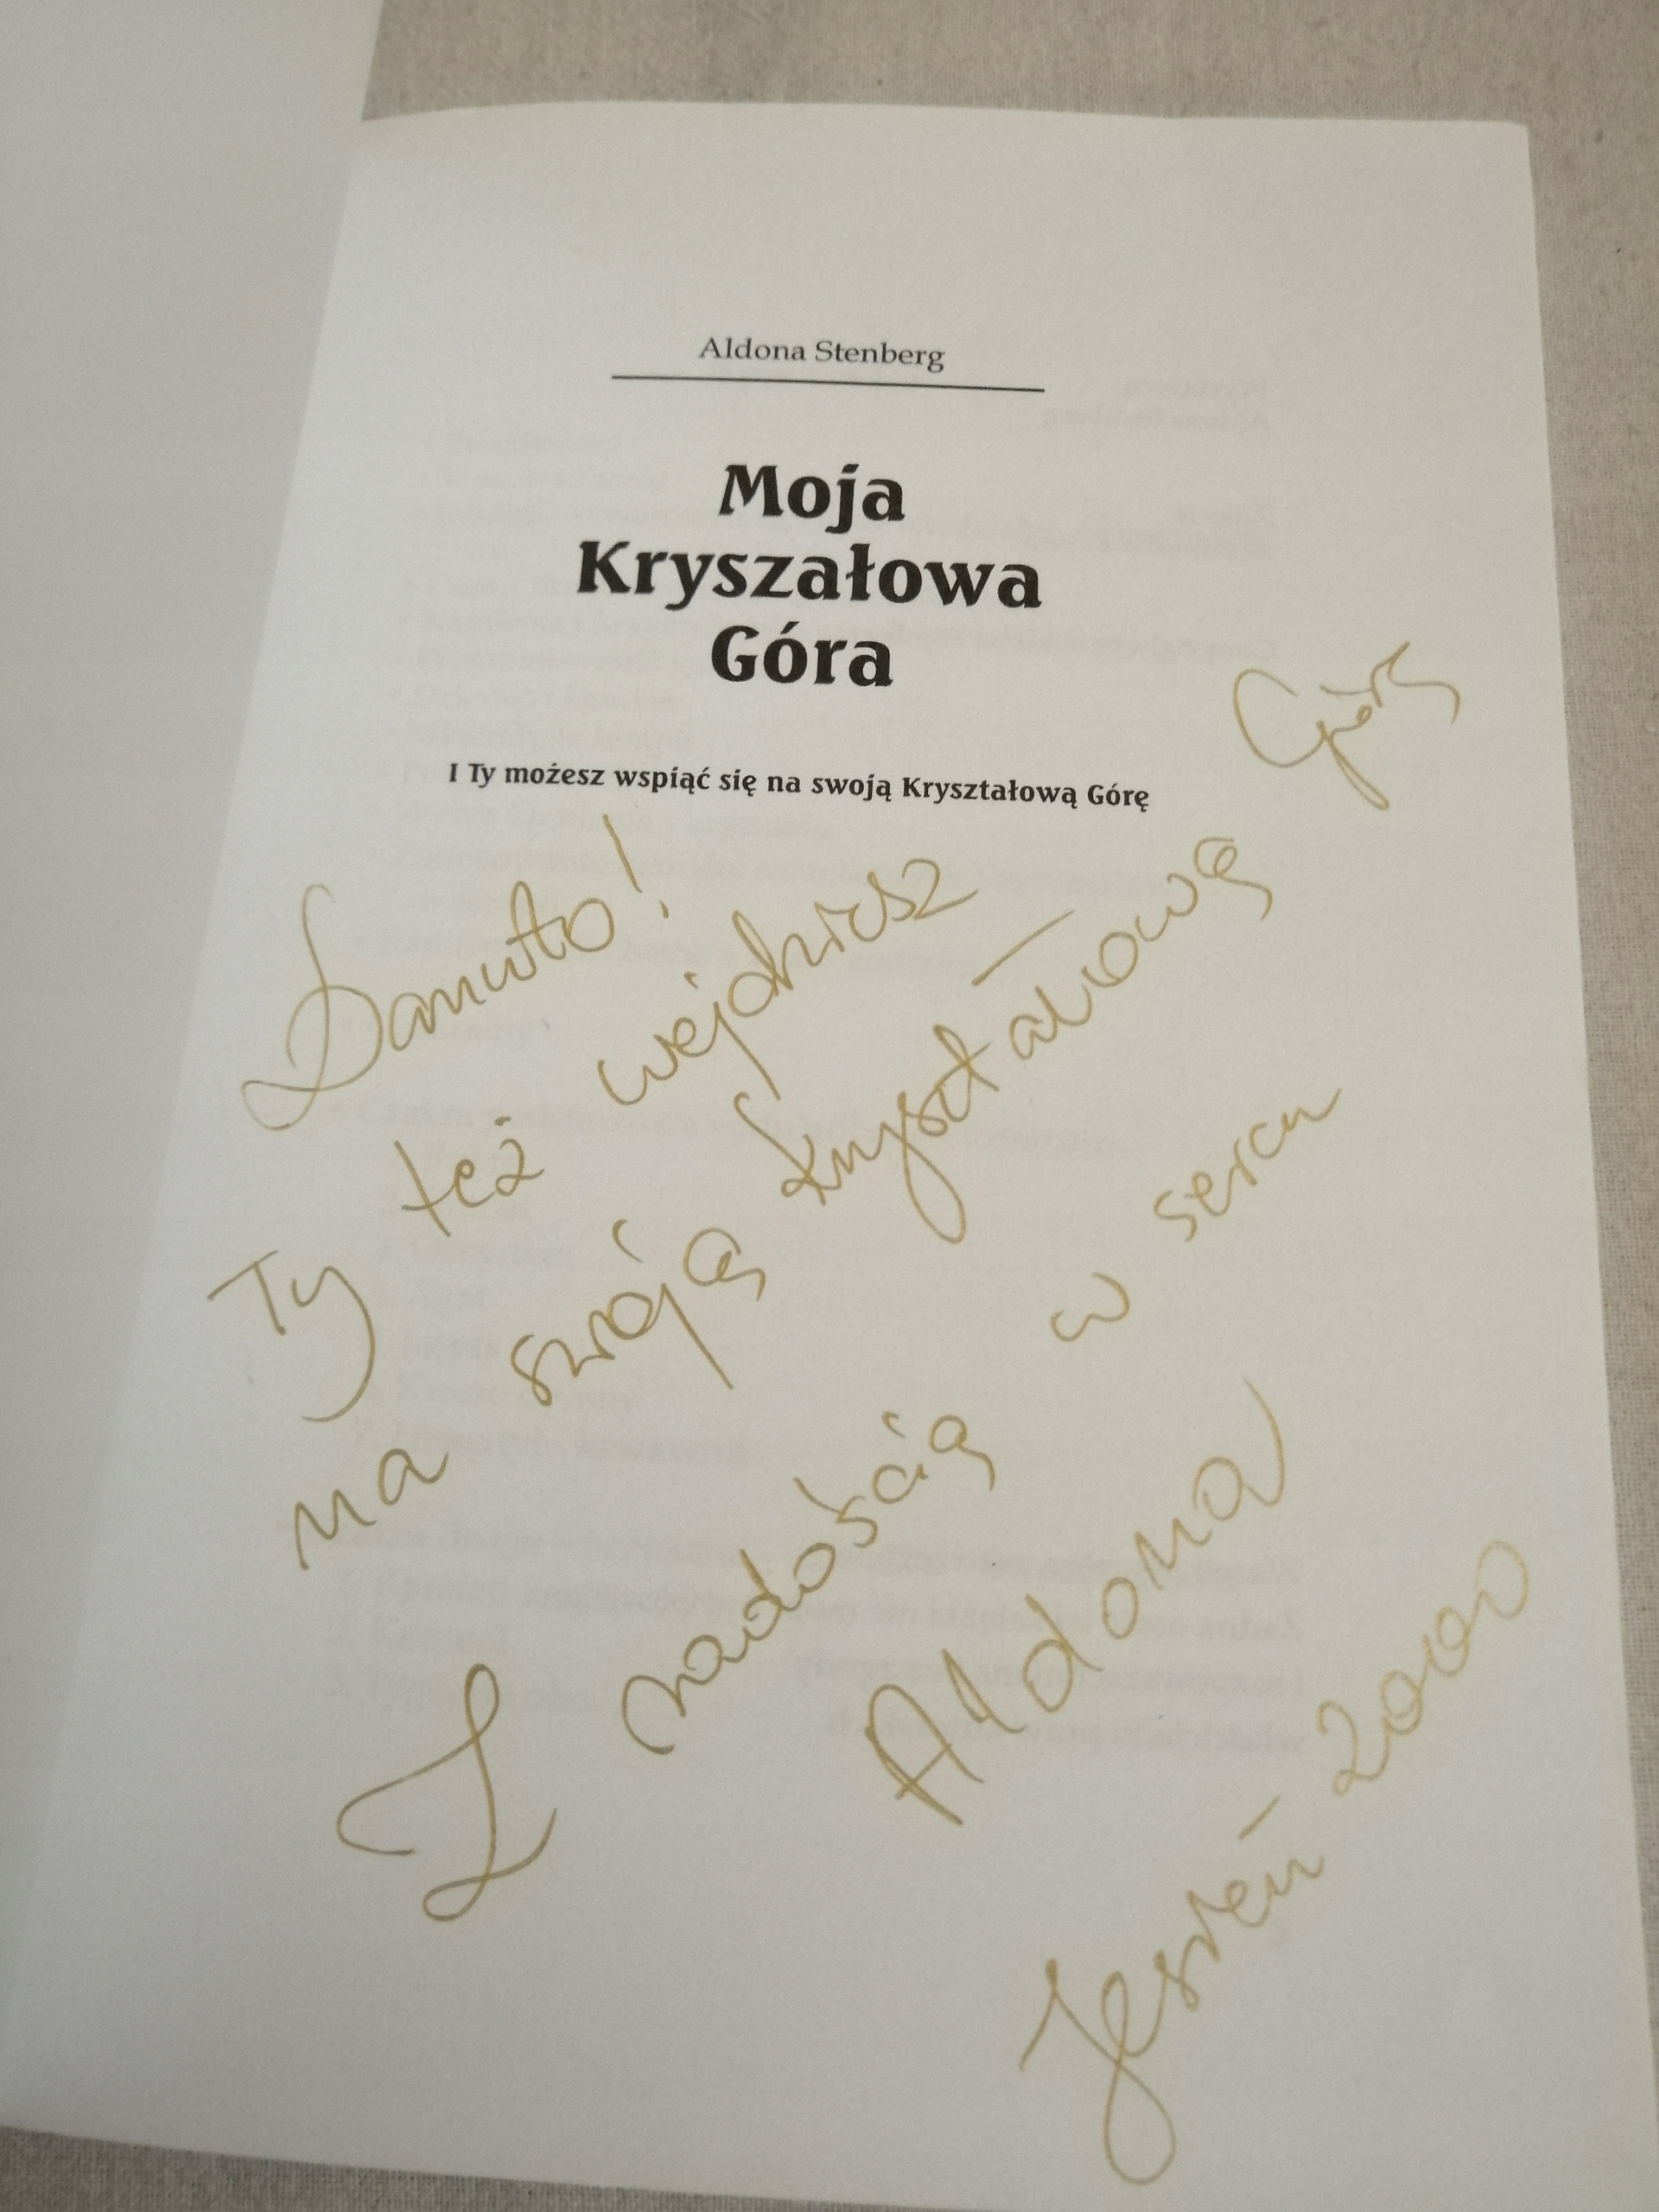 Aldona Stenberg
Moja
Kryszałowa
Góra
I Ty możesz wspiąć się na swoją Kryształową Górę
Danuto!
Ty też wejdziesz
na swoją Kryształową Górę
Z radością w sercu
Aldona
Jesień 2000